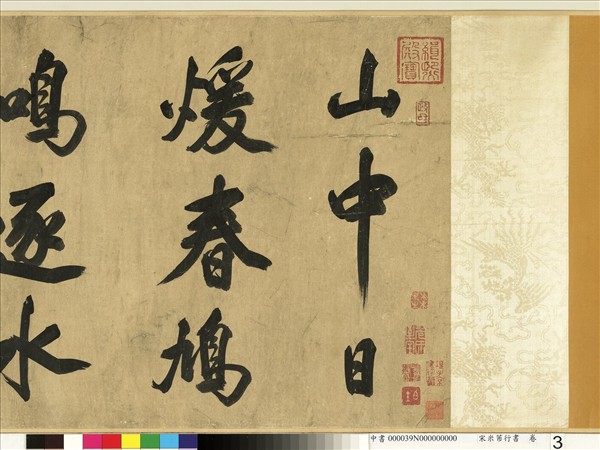 山中日
煖春鳩
鳴逐水
中書 000039N000000000 宋米芾行書 卷 3